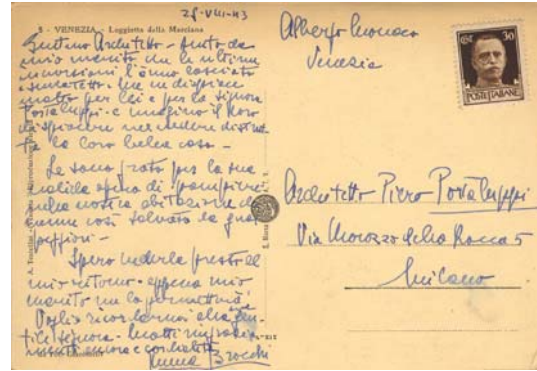 28-VIII-43
8 - VENEZIA - Loggietta della Marciana
Architetto - sento da
mio marito che le ultime
incursioni l'hanno lasciato
senza tetto. Me ne dispiace
molto per Lei e per la Signora
Portaluppi e immagino il loro
dispiacere nel vedere distrut-
ta la loro bella casa -
Le sono grata per la sua
valida opera di pompiere
sulla nostra abitazione che
venne così salvata da
peggiori -
Spero vederla presto al
mio ritorno appena mio
marito me lo permetterà.
Voglia ricordarmi alla gen-
tile signora. Molti
ancora e cordialità
Brocchi
Albergo Monaco
Venezia
CENT. 30
POSTE ITALIANE
Architetto Piero Portaluppi
Via Morozzo della Rocca 5
Milano